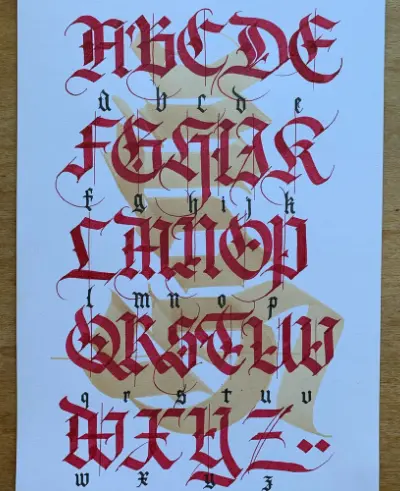 ABCDE
a b c d e
FGHIJK
f g h i j k
LMNOP
l m n o p
QRSTUV
q r s t u v
WXYZ
w x y z